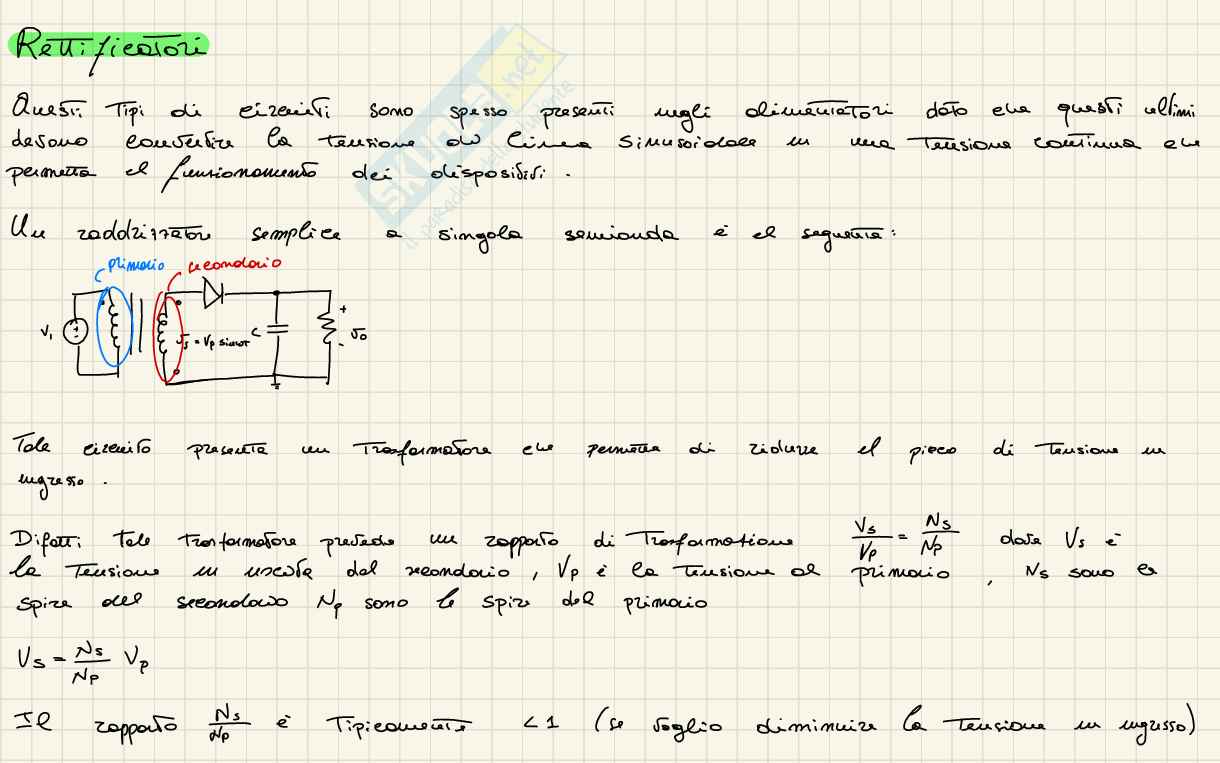 Rettificatori
Questi tipi di circuiti sono spesso presenti negli alimentatori dato che questi ultimi
devono convertire la tensione di linea sinusoidale in una tensione continua che
permetta il funzionamento dei dispositivi.
Un raddrizzatore semplice a singola semionda è il seguente:
primario
secondario
V₁
vₛ = Vp sinωt
C
+
vo
-
Tale circuito presenta un trasformatore che permette di ridurre il picco di tensione in
ingresso.
Difatti tale trasformatore prevede un rapporto di trasformazione Vs/Vp = Ns/Np dove Vs è
la tensione in uscita dal secondario, Vp è la tensione al primario, Ns sono le
spire del secondario Np sono le spire del primario
Vs = Ns/Np Vp
Il rapporto Ns/Np è tipicamente <1 (se voglio diminuire la tensione in ingresso)
skuola.net
il paradiso dello studente